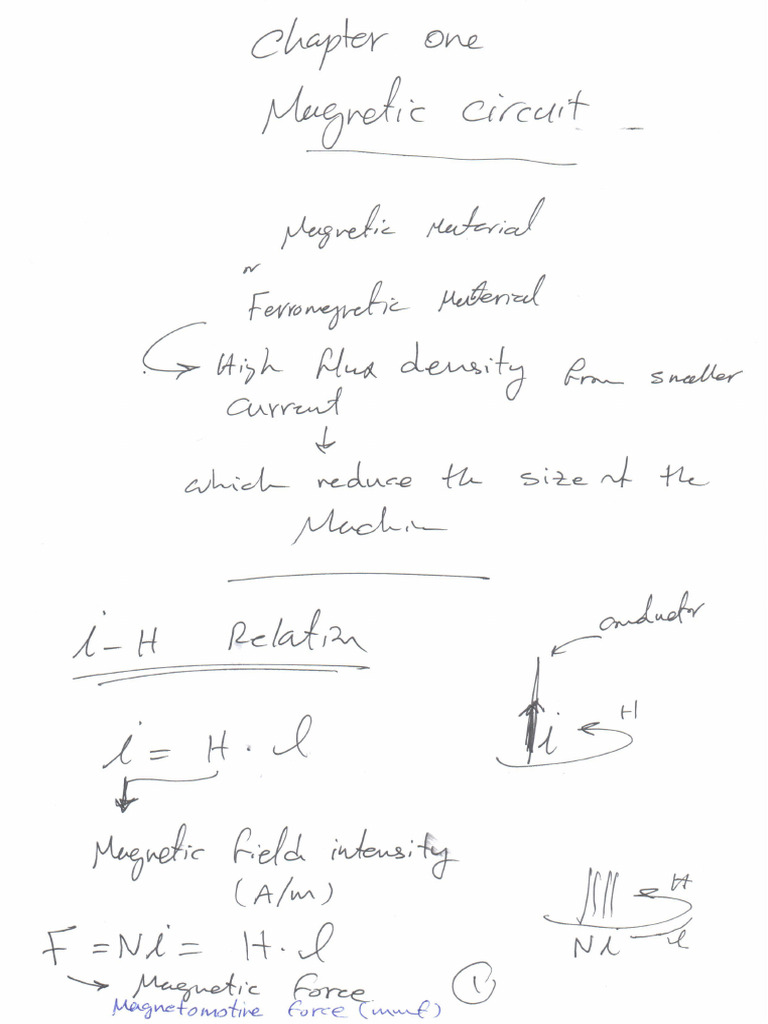 Chapter one
Magnetic circuit
Magnetic Material
or
Ferromagnetic Material
High flux density from smaller
current
which reduce the size of the
Machine
i-H Relation
conductor
i = H . l
i
H
Magnetic field intensity
(A/m)
H
F = Ni = H . l
Ni
l
Magnetic Force
Magnetomotive force (mmf)
1